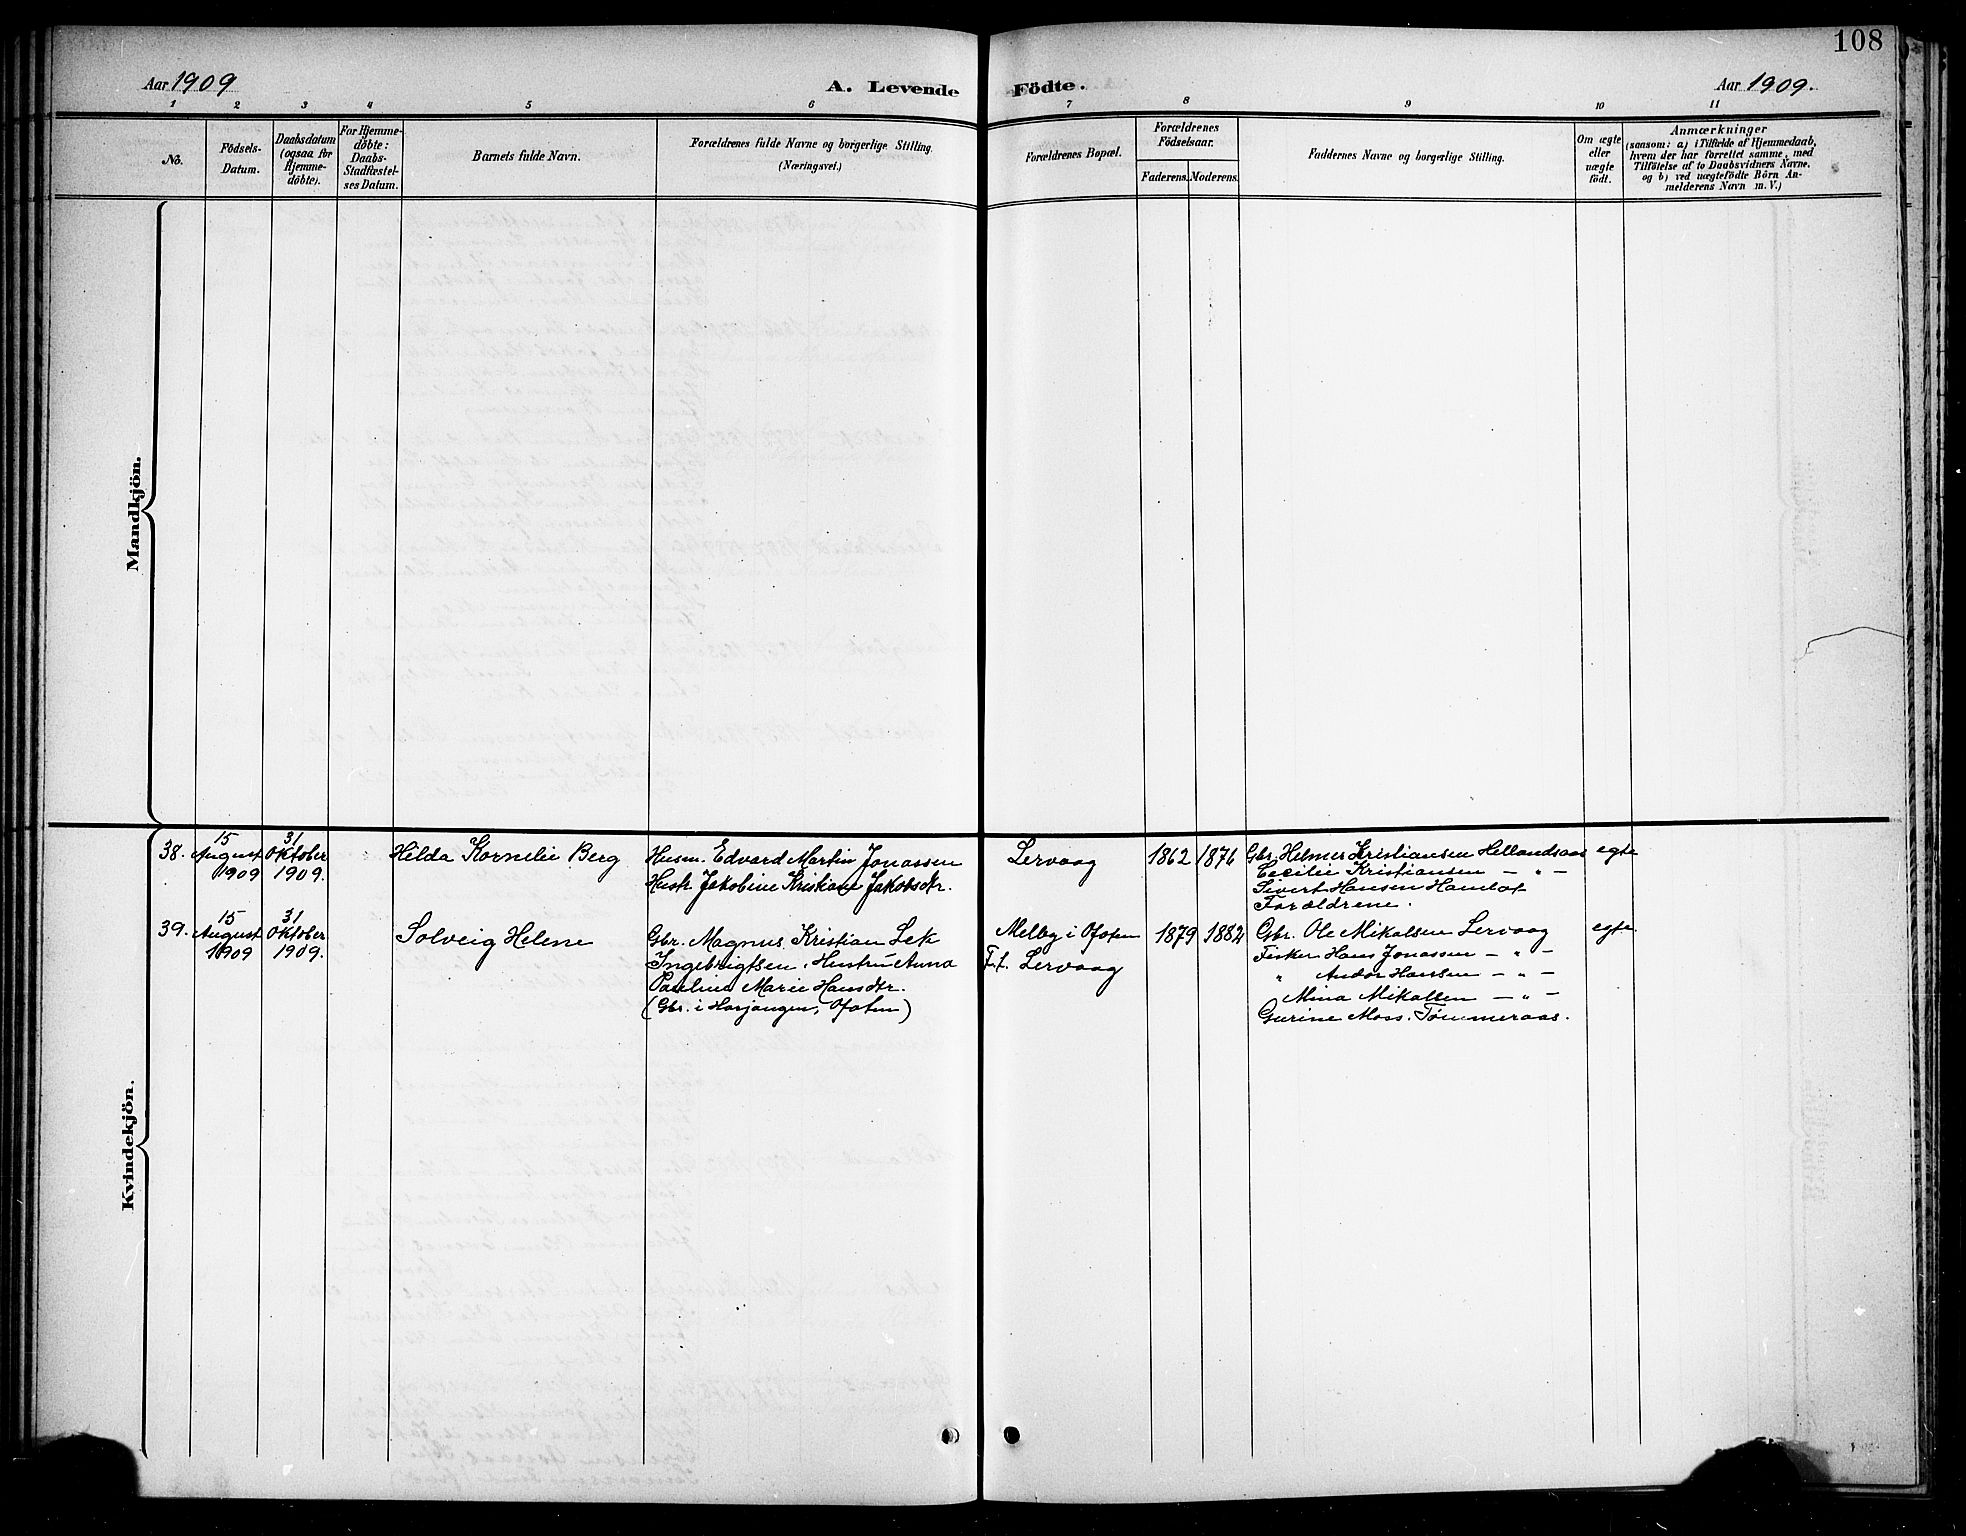 108
Aar 1909
A. Levende Födte.
Aar 1909.
1 2 3 4 5 6 7 8 9 10 11
No.
Födsels-
Datum.
Daabsdatum
(ogsaa for
Hjemme-
döbte).
For Hjemme-
döbte:
Daabs-
Stadfæstel-
ses Datum.
Barnets fulde Navn.
Forældrenes fulde Navne og borgerlige Stilling.
(Næringsvei.)
Forældrenes Bopæl.
Forældrenes
Födselsaar.
Faderens. Moderens.
Faddernes Navne og borgerlige Stilling.
Om ægte
eller
uægte
födt.
Anmærkninger
(saasom: a) i Tilfælde af Hjemmedaab,
hvem der har forrettet samme, med
Tilföielse af to Daabsvidners Navne,
og b) ved uægtefödte Börn An-
melderens Navn m. V.)
Mandkjön.
Kvindekjön.
38.
15
August
1909
31
Oktober
1909.
Hilda Kornelie Berg
Husm. Edvard Martin Jonassen
Hustr. Jakobine Kristiane Jakobsdtr.
Lervaag
1862 1876
Gbr. Helmer Kristiansen Hellandsaas
Cecilie Kristiansen — „ —
Sivert Hansen Hamlot
Forældrene.
egte
39.
15
August
1909
31
Oktober
1909.
Solveig Helene
Gbr. Magnus Kristian Lek
Ingebrigtsen. Hustru Anna
Pauline Marie Hansdtr.
(Gbr. i Harjangen, Ofoten)
Melby i Ofoten
F.f. Lervaag
1879 1882
Gbr. Ole Mikalsen Lervaag
Fisker Hans Jonassen — „ —
„ Andor Hansen — „ —
Mina Mikalsen — „ —
Gurine Moss. Tømmeraas.
egte.